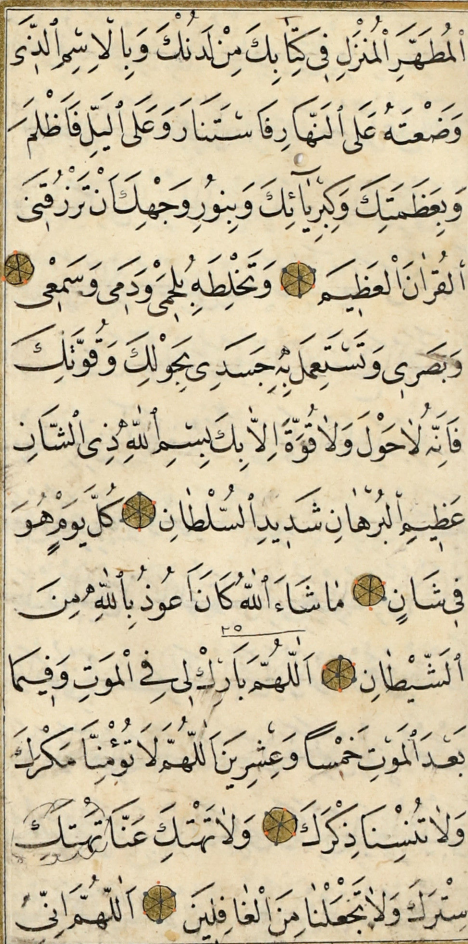 اَلْمُطَهَّرِ الْمُنْزَلِ فِى كِتَابِكَ مِنْ لَدُنْكَ وَبِالْاِسْمِ الَّذِى
وَضَعْتَهُ عَلَى النَّهَارِ فَاسْتَنَارَ وَعَلَى الَّيْلِ فَاَظْلَمَ
وَبِعَظَمَتِكَ وَكِبْرِيَآئِكَ وَبِنُورِ وَجْهِكَ اَنْ تَرْزُقَنِى
الْقُرْاٰنَ الْعَظِيمَ وَتَخْلِطَهُ بِلَحْمِى وَدَمِى وَسَمْعِى
وَبَصَرِى وَتَسْتَعْمِلَ بِهِ جَسَدِى بِحَوْلِكَ وَقُوَّتِكَ
فَاِنَّهُ لَاحَوْلَ وَلَاقُوَّةَ اِلَّا بِكَ بِسْمِ اللّٰهِ ذِى الشَّانِ
عَظِيمِ الْبُرْهَانِ شَدِيدِ السُّلْطَانِ كُلَّ يَوْمٍ هُوَ
فِى شَانٍ مَا شَاءَ اللّٰهُ كَانَ اَعُوذُ بِاللّٰهِ مِنَ
٢٥
الشَّيْطَانِ اَللّٰهُمَّ بَارِكْ لِى فِى الْمَوْتِ وَفِيمَا
بَعْدَ الْمَوْتِ خَمْسًا وَعِشْرِينَ اَللّٰهُمَّ لَا تُؤْمِنَّا مَكْرَكَ
وَلَا تُنْسِنَا ذِكْرَكَ وَلَا تَهْتِكْ عَنَّا تَهْتِكْ
سِتْرَكَ وَلَا تَجْعَلْنَا مِنَ الْغَافِلِينَ اَللّٰهُمَّ اِنِّى